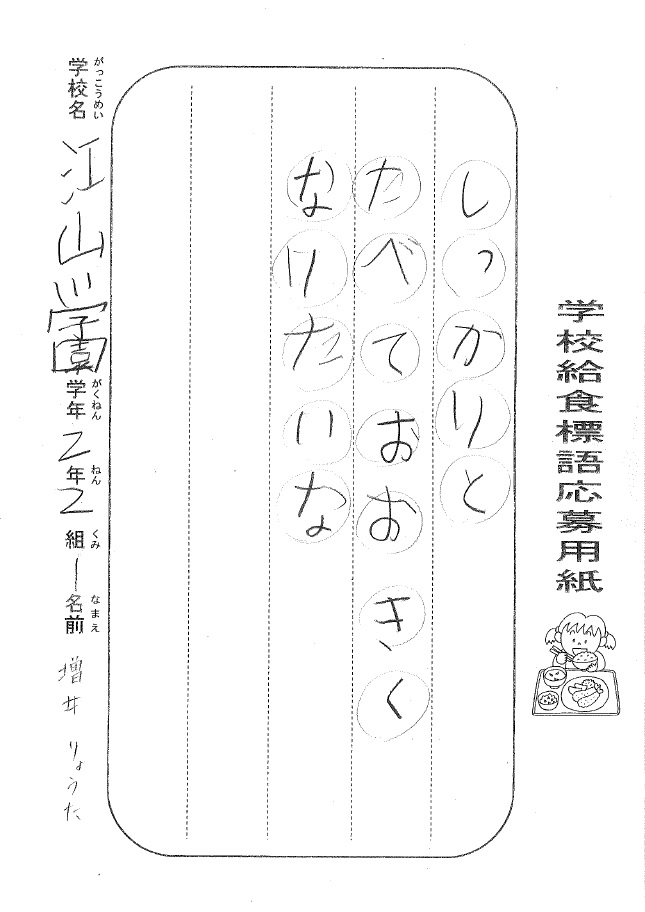 学校給食標語応募用紙
しっかりと
たべておおきく
なりたいな
がっこうめい
学校名 江山学園
がくねん ねん くみ
学年 2年2組
なまえ
名前 増井 りょうた